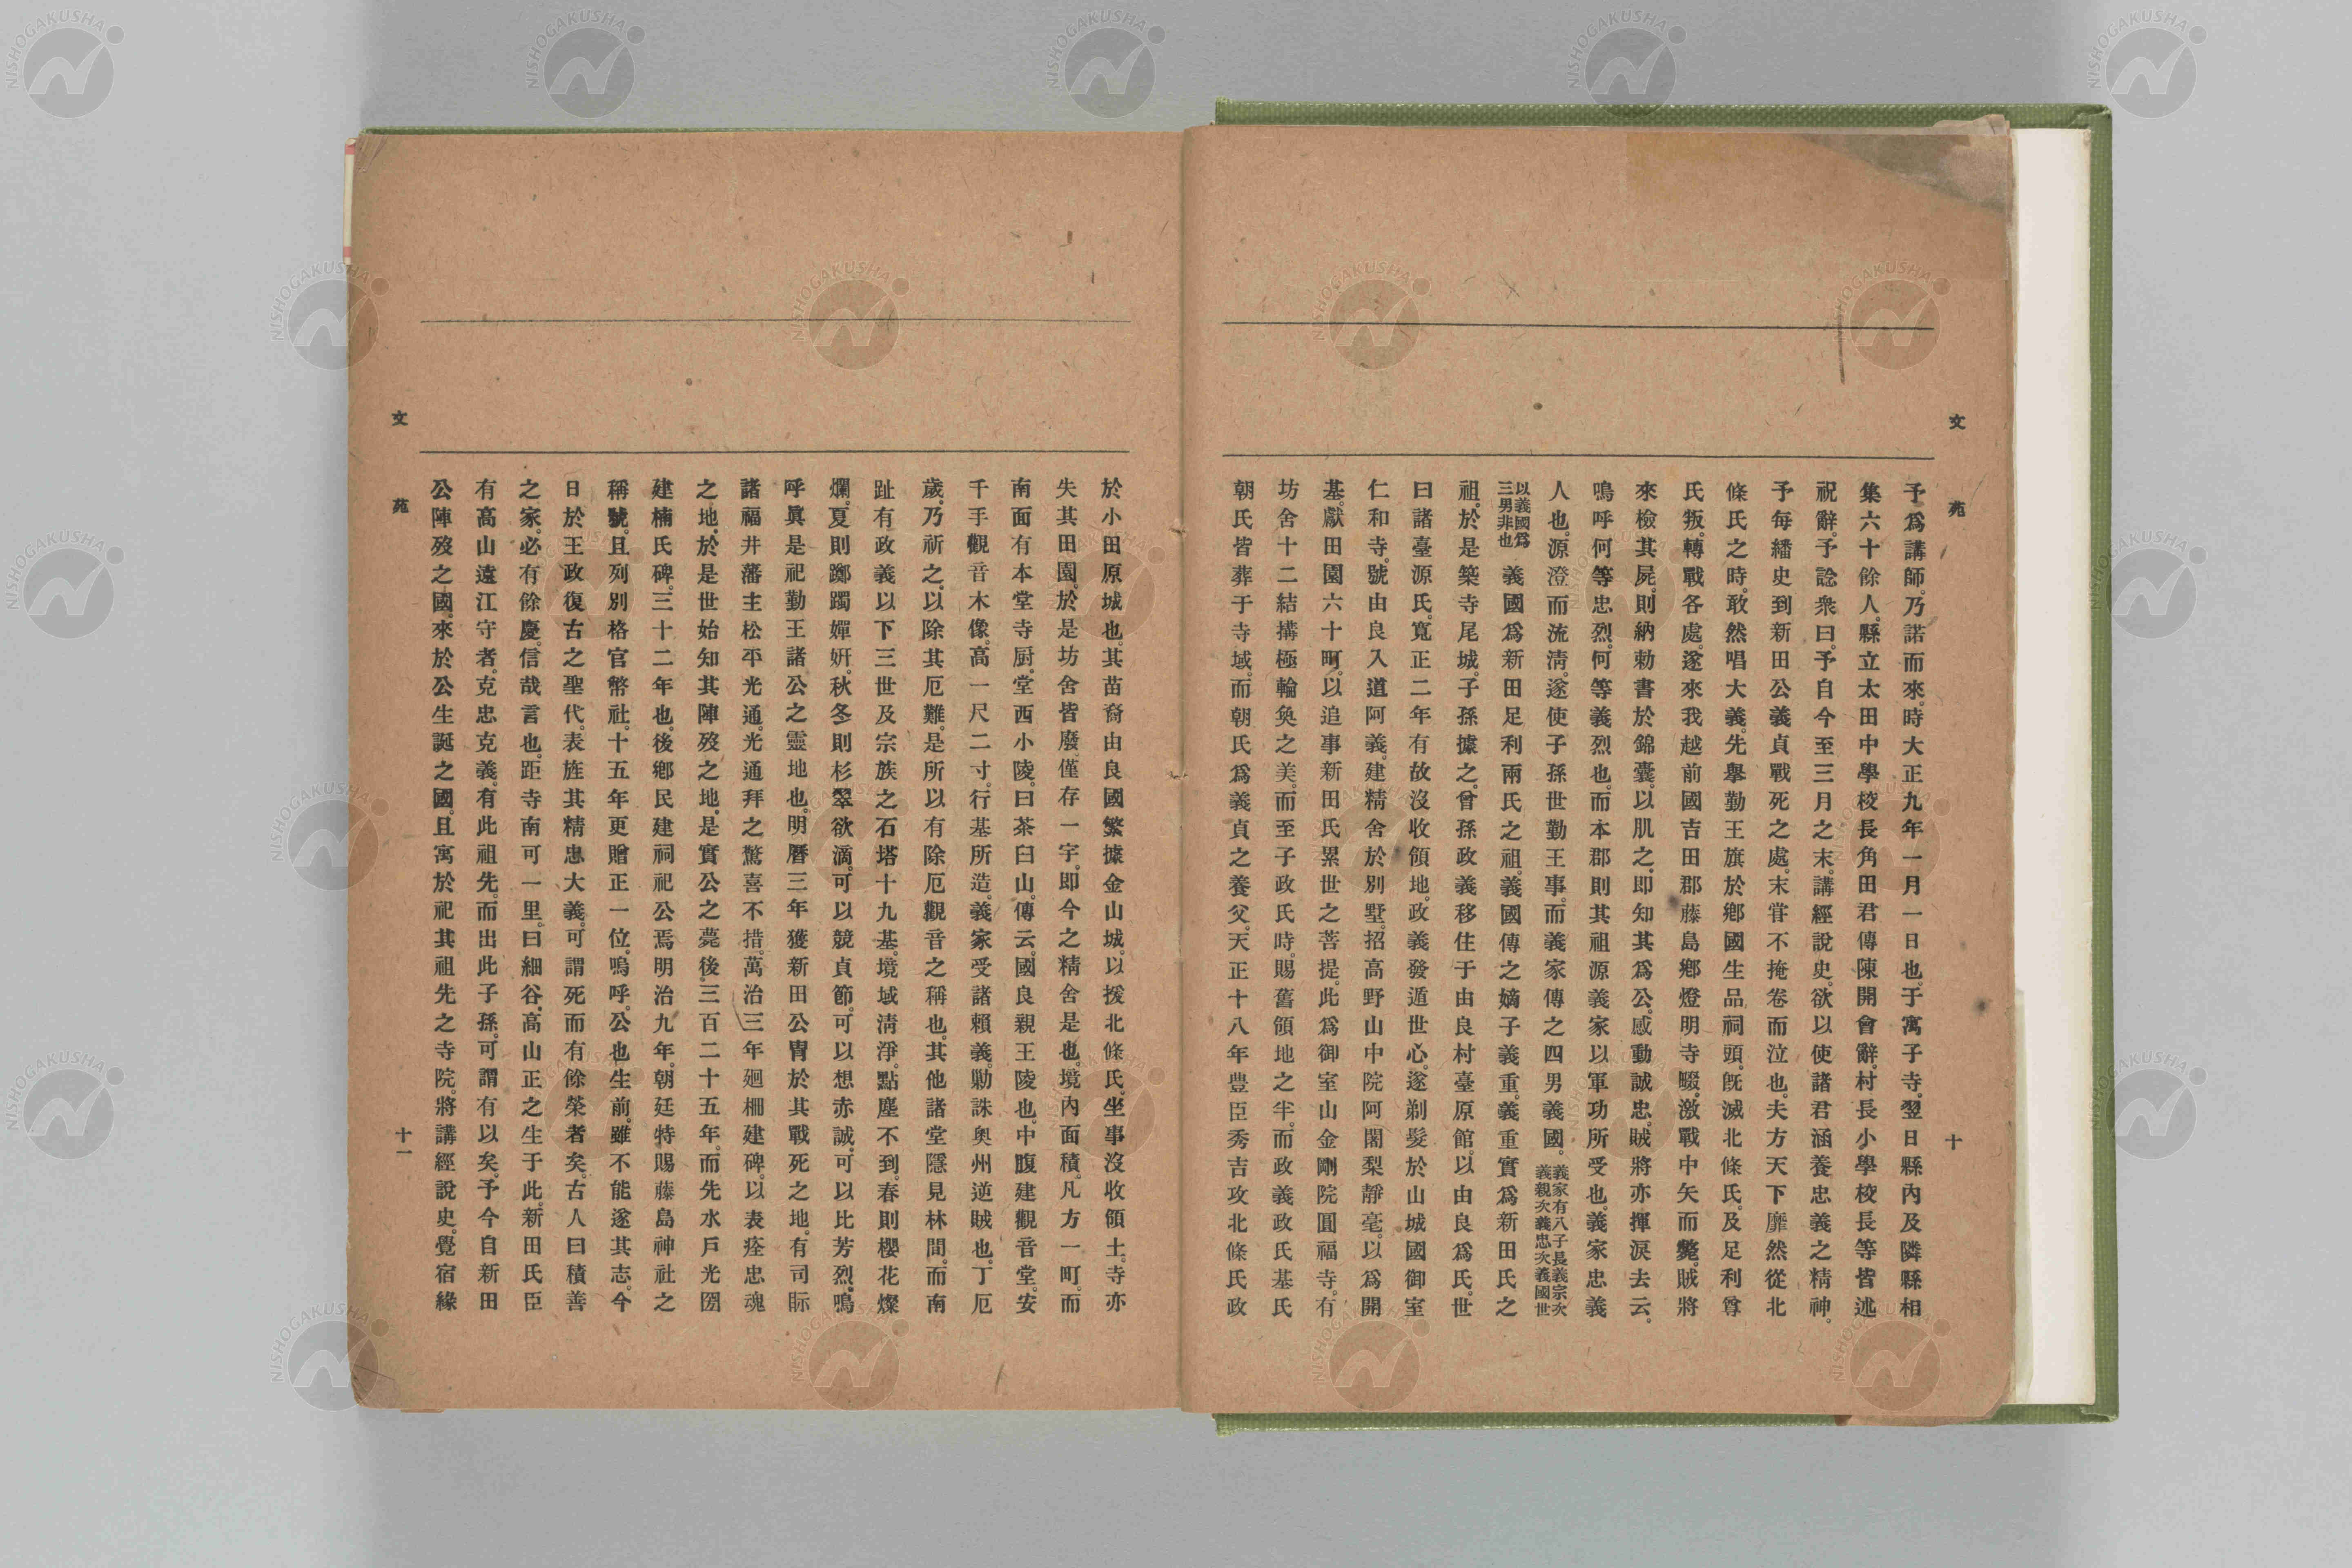 文苑
十
予爲講師。乃諾而來。時大正九年一月一日也。于寓子寺。翌日縣內及隣縣相
集六十餘人。縣立太田中學校長角田君傳陳開會辭。村長小學校長等皆述
祝辭。予諗衆曰。予自今至三月之末。講經說史。欲以使諸君涵養忠義之精神。
予每繙史到新田公義貞戰死之處。末甞不掩卷而泣也。夫方天下靡然從北
條氏之時。敢然唱大義。先擧勤王旗於鄕國生品祠頭。旣滅北條氏。及足利尊
氏叛。轉戰各處。遂來我越前國吉田郡藤島鄕燈明寺畷。激戰中矢而斃。賊將
來檢其屍。則納勅書於錦囊。以肌之。即知其爲公。感動誠忠。賊將亦揮淚去云。
嗚呼何等忠烈。何等義烈也。而本郡則其祖源義家以軍功所受也。義家忠義
人也。源澄而流淸。遂使子孫世勤王事。而義家傳之四男義國。義家有八子長義宗次義親次義忠次義國世
以義國爲三男非也 義國爲新田足利兩氏之祖。義國傳之嫡子義重。義重實爲新田氏之
祖。於是築寺尾城。子孫據之。曾孫政義移住于由良村臺原館。以由良爲氏。世
曰諸臺源氏。寬正二年有故沒收領地。政義發遁世心。遂剃髮於山城國御室
仁和寺。號由良入道阿義。建精舍於別墅。招高野山中院阿闍梨靜毫。以爲開
基。獻田園六十町。以追事新田氏累世之菩提。此爲御室山金剛院圓福寺。有
坊舍十二結搆極輪奐之美。而至子政氏時。賜舊領地之半。而政義政氏基氏
朝氏皆葬于寺域。而朝氏爲義貞之養父。天正十八年豊臣秀吉攻北條氏政
於小田原城也。其苗裔由良國繁據金山城。以援北條氏。坐事沒收領土。寺亦
失其田園。於是坊舍皆廢。僅存一宇。即今之精舍是也。境內面積。凡方一町。而
南面有本堂寺厨。堂西小陵。曰茶臼山。傳云。國良親王陵也。中腹建觀音堂。安
千手觀音木像。高一尺二寸。行基所造。義家受諸賴義。勦誅奥州逆賊也。丁厄
歲。乃祈之。以除其厄難。是所以有除厄觀音之稱也。其他諸堂隱見林間。而南
趾有政義以下三世及宗族之石塔十九基。境域淸淨。點塵不到。春則櫻花燦
爛。夏則躑躅嬋妍。秋冬則杉翠欲滴。可以競貞節。可以想赤誠。可以比芳烈。嗚
呼眞是祀勤王諸公之靈地也。明曆三年獲新田公冑於其戰死之地。有司眎
諸福井藩主松平光通。光通拜之驚喜不措。萬治三年廻柵建碑。以表痊忠魂
之地。於是世始知其陣歿之地。是實公之薨後。三百二十五年。而先水戶光圀
建楠氏碑。三十二年也。後鄕民建祠祀公焉明治九年。朝廷特賜藤島神社之
稱號。且列別格官幣社。十五年更贈正一位。嗚呼。公也生前。雖不能遂其志。今
日於王政復古之聖代。表旌其精忠大義。可謂死而有餘榮者矣。古人曰積善
之家。必有餘慶。信哉言也。距寺南可一里。曰細谷。高山正之生于此。新田氏臣
有高山遠江守者。克忠克義。有此祖先。而出此子孫。可謂有以矣。予今自新田
公陣歿之國。來於公生誕之國。且寓於祀其祖先之寺院。將講經說史。覺宿緣
文苑
十一